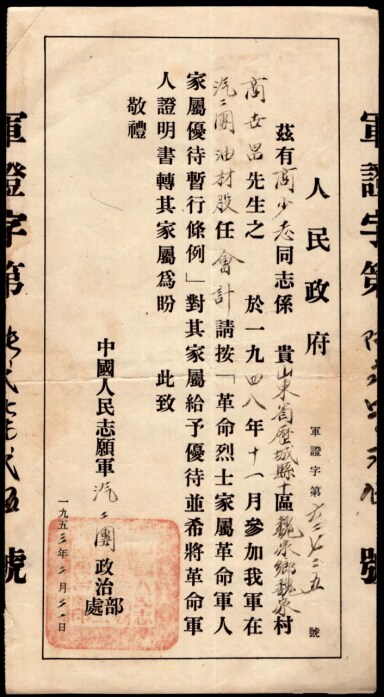 軍證字第 號
人民政府
軍證字第六二七二五號
茲有商少志同志係 貴山東省歷城縣十區魏家鄉魏家村
商世昌先生之 於一九四八年十一月參加我軍在
汽二團油材股任會計請按「革命烈士家屬革命軍人
家屬優待暫行條例」對其家屬給予優待並希將革命軍
人證明書轉其家屬為盼 此致
敬禮
中國人民志願軍汽二團政治部處
一九五三年二月二一日
軍證字第陸貳柒貳伍號